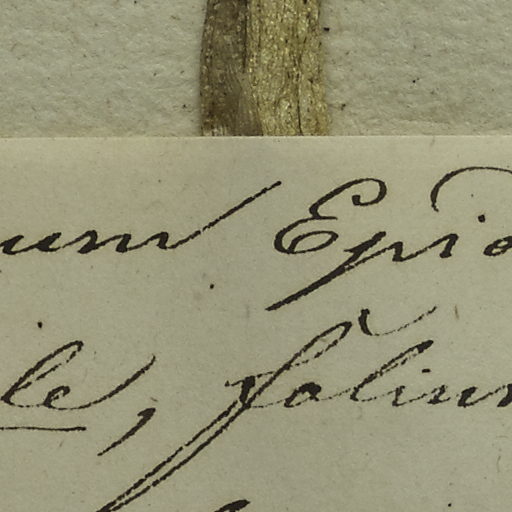 um Epid
le, foliu